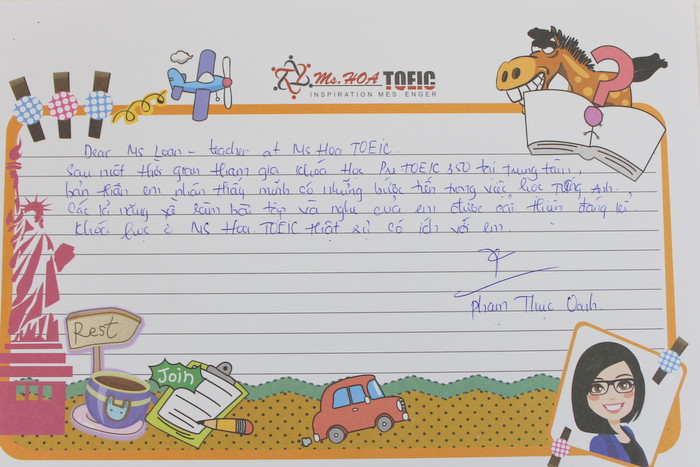 Ms. HOA TOEIC
INSPIRATION MES ENGER
Dear Ms Loan - teacher at Ms Hoa TOEIC.
Sau một thời gian tham gia khóa học Pre TOEIC 350 tại trung tâm,
bản thân em nhận thấy mình có những bước tiến trong việc học Tiếng Anh.
Các kĩ năng về làm bài tập và nghe của em được cải thiện đáng kể
Khóa học ở MS Hoa TOEIC thật sự có ích với em.
Phạm Thục Oanh
Rest
Join